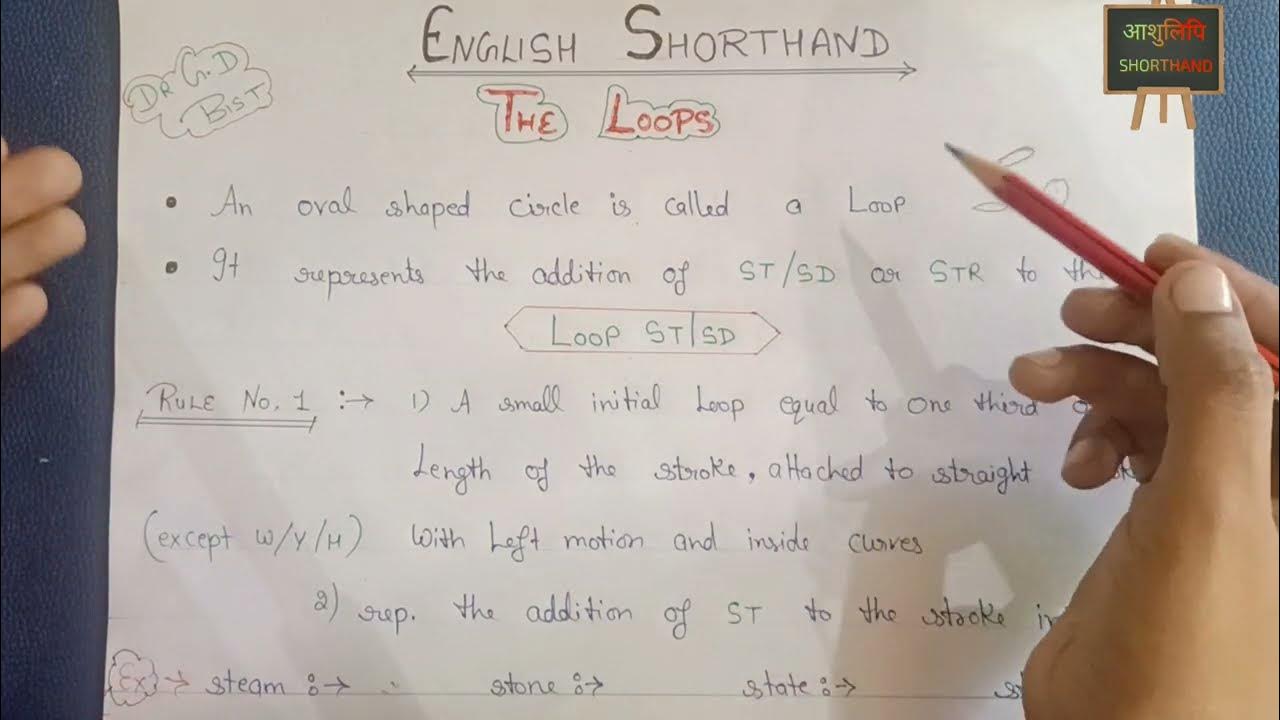 ENGLISH SHORTHAND
आशुलिपि
SHORTHAND
DR G.D
BIST
THE LOOPS
• An oval shaped circle is called a Loop
• It represents the addition of ST/SD or STR to
LOOP ST/SD
RULE NO. 1 :→ 1) A small initial Loop equal to one third
Length of the stroke, attached to straight
(except W/Y/H) with Left motion and inside curves
2) rep. the addition of ST to the stroke
Ex → steam :→ stone :→ state :→